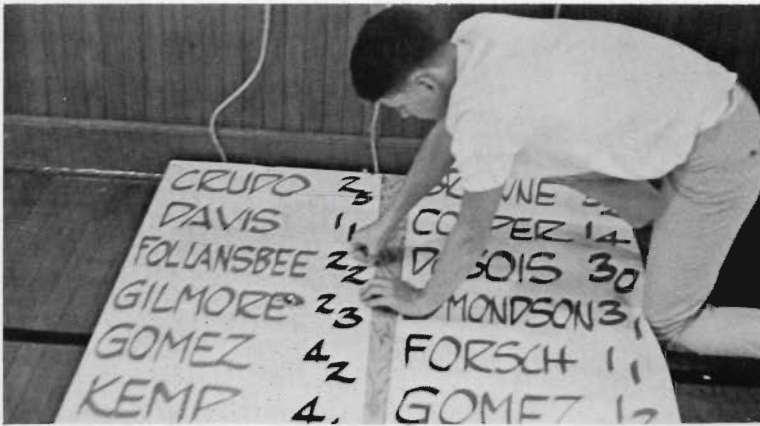 CRUDO 25
DAVIS 11
FOLLANSBEE 22
GILMORE 23
GOMEZ 42
KEMP 4
COOPER 14
DUBOIS 30
EDMONDSON 31
FORSCH 11
GOMEZ 12